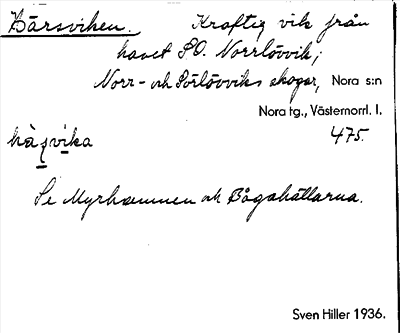 Bårsviken. Kraftig vik från
havet SO. Norrlövvik;
Norr- och Sörlövviks skogar, Nora s:n
Nora tg., Västernorrl. l.
475.
Se Myrhamnen och Bågahällarna.
Sven Hiller 1936.